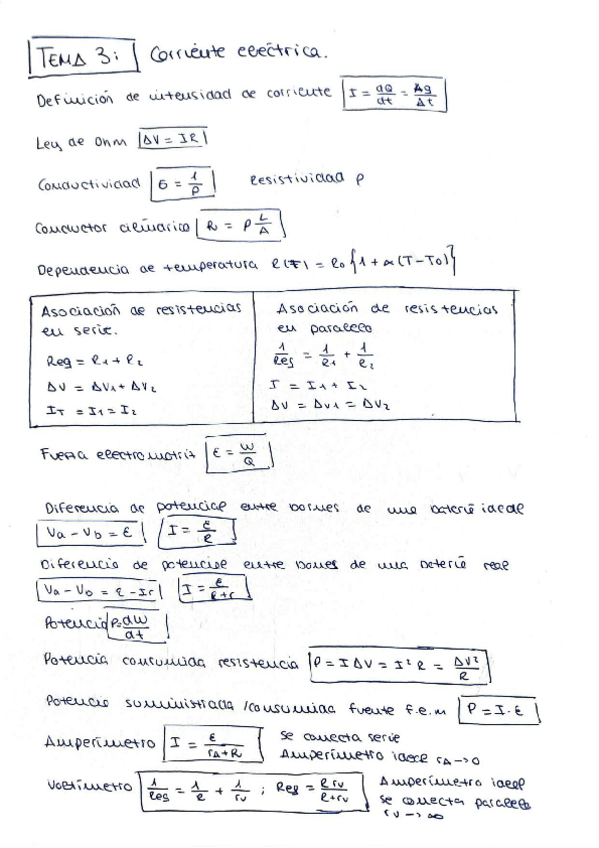 TEMA 3: Corriente eléctrica.
Definición de intensidad de corriente I = dQ/dt = Δq/Δt
Ley de Ohm ΔV = IR
Conductividad σ = 1/ρ Resistividad ρ
Conductor cilíndrico R = ρ L/A
Dependencia de temperatura R(T) = R₀{1 + α(T-T₀)}
Asociación de resistencias
en serie.
Req = R₁ + R₂
ΔV = ΔV₁ + ΔV₂
I_T = I₁ = I₂
Asociación de resistencias
en paralelo
1/Req = 1/R₁ + 1/R₂
I = I₁ + I₂
ΔV = ΔV₁ = ΔV₂
Fuerza electromotriz ε = W/Q
Diferencia de potencial entre bornes de una batería ideal
Va - Vb = ε I = ε/R
Diferencia de potencial entre bornes de una batería real
Va - Vb = ε - Ir I = ε/R+r
Potencia P = dW/dt
Potencia consumida resistencia P = I ΔV = I² R = ΔV²/R
Potencia suministrada /consumida fuente f.e.m P = I · ε
Amperímetro I = ε/r_A+R se conecta serie
Amperímetro ideal r_A → 0
Voltímetro 1/Req = 1/R + 1/r_v ; Req = R r_v/R+r_v Amperímetro ideal
se conecta paralelo
r_v → ∞